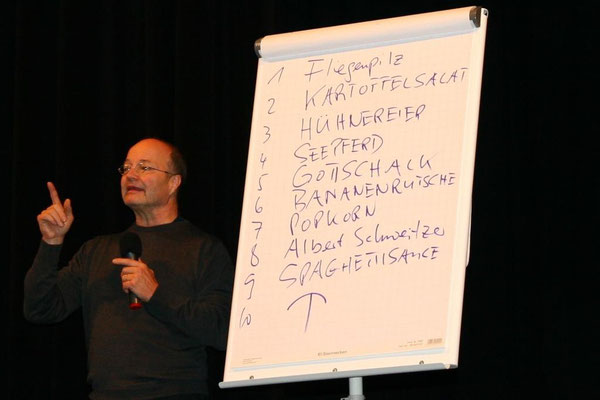 1 Fliegenpilz
2 KARTOFFELSALAT
3 HÜHNEREIER
4 SEEPFERD
5 GOTTSCHALK
6 BANANENRUTSCHE
7 POPKORN
8 Albert Schweitzer
9 SPAGHETTISAUCE
10